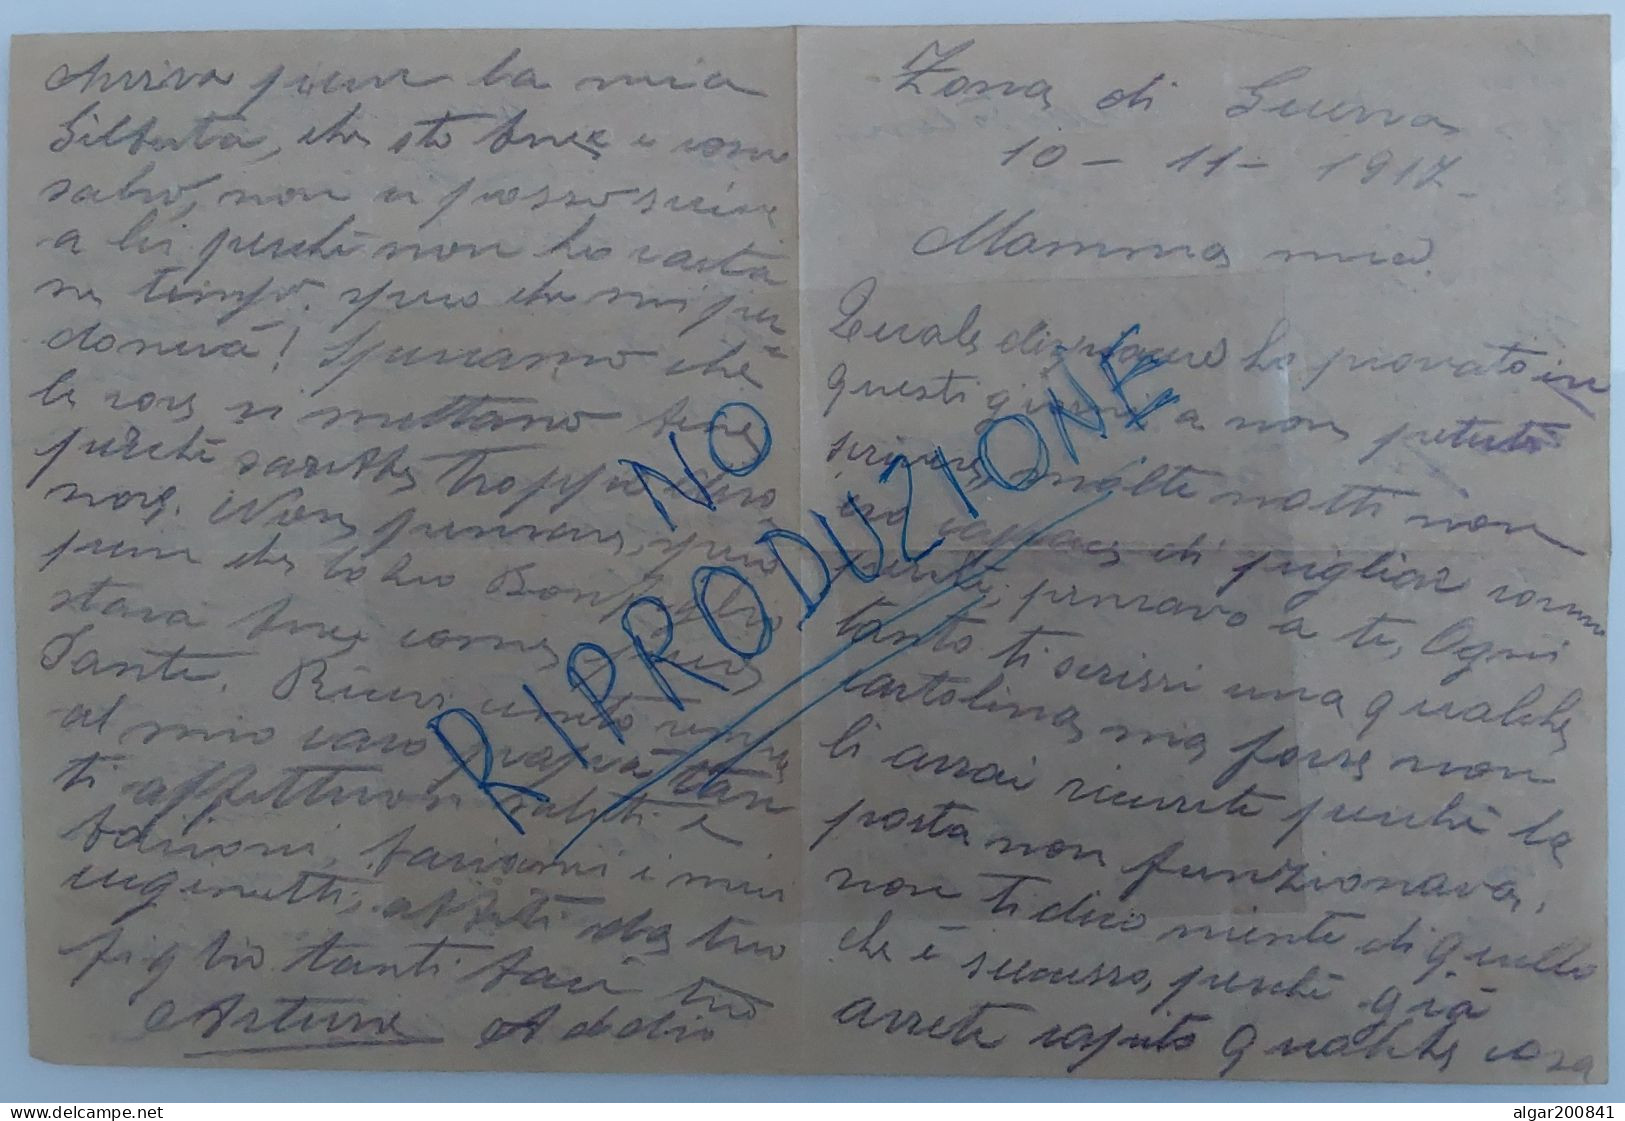 Zona di Guerra
10 - 11 - 1917 -
Mamma mia.
Quale dispiacere ho provato in
questi giorni a non poterti
scrivere, molte notti non
ero capace di pigliar sonno
pensavo a te, Ogni
tanto ti scrissi una qualche
cartolina ma forse non
li avrai ricevute perchè la
posta non funzionava,
non ti dico niente di quello
che è successo, perchè già
avrete capito qualche cosa
Avvisa pure la mia
Gilberta, che sto bene e sono
salvo, non ci posso scrivere
a lei perchè non ho carta
ne tempo. spero che mi per-
donerà! Speriamo che
le cose si mettano bene
perchè sarebbe troppo
Non pensare, spero
pure che lo zio Bonfiglio
starà bene come pure
Sante. Ricevi unito
al mio caro papà tan
ti affettuosi saluti e
bacioni, baciami i miei
cuginetti, abbiti dal tuo
figlio tanti baci tuo
Arturo Addio
NO
RIPRODUZIONE
algar200841